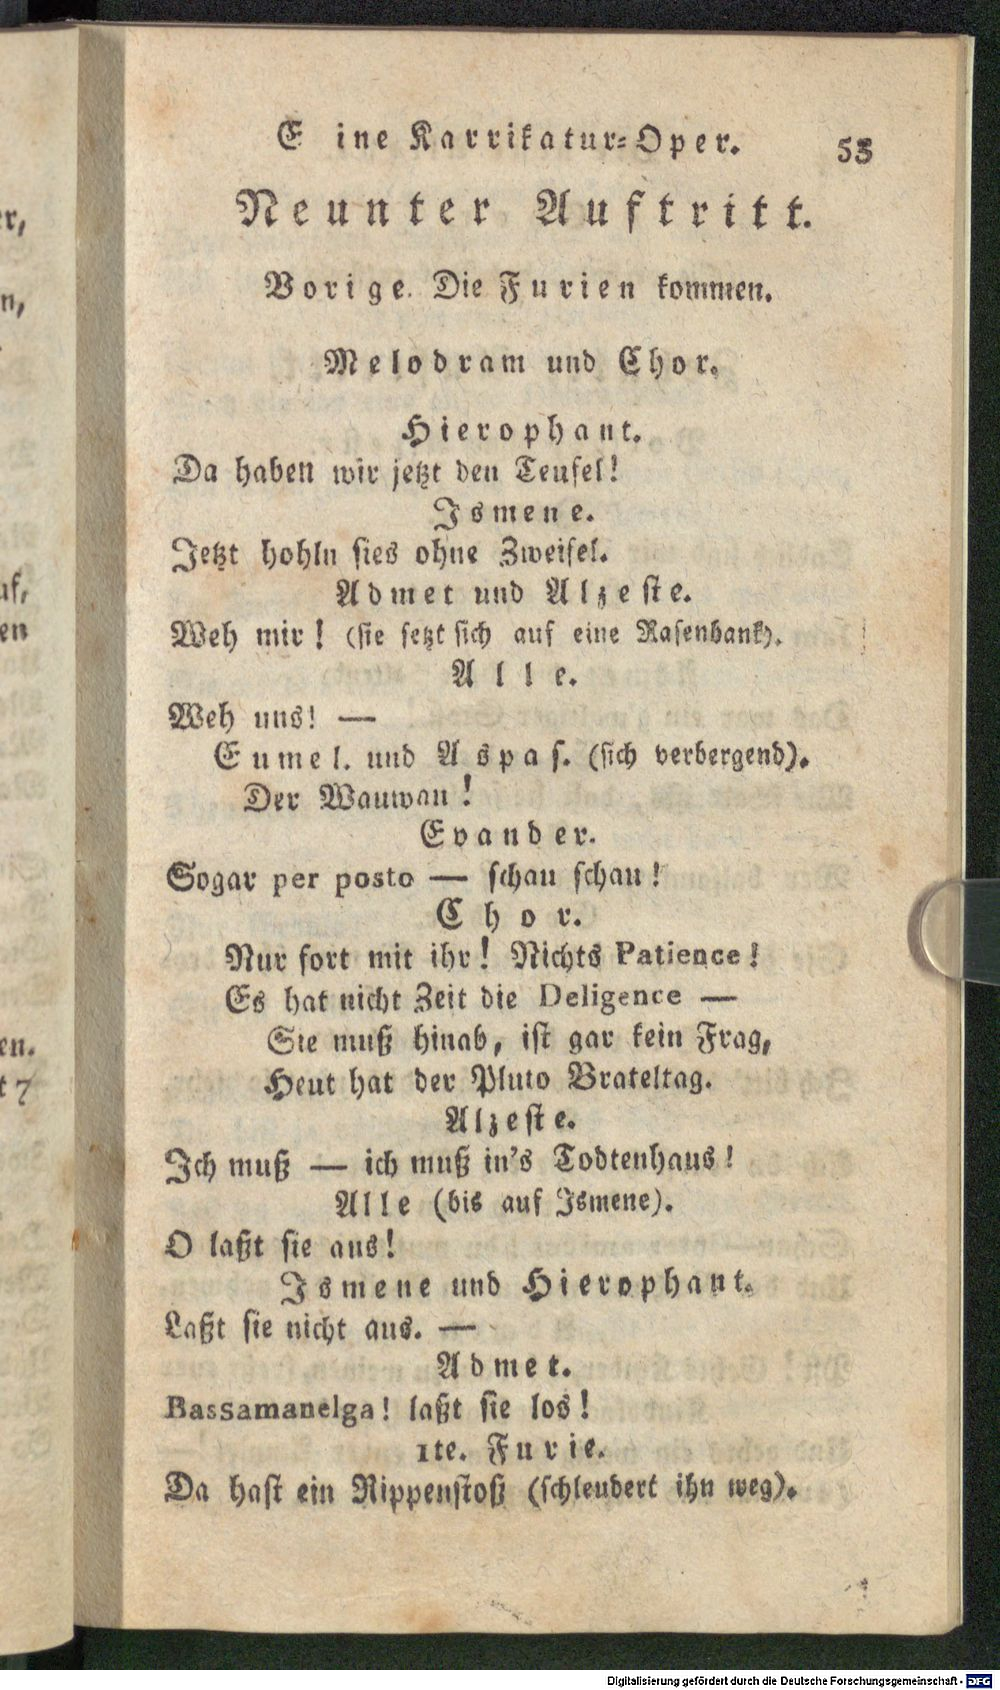 Eine Karrikatur=Oper. 53
Neunter Auftritt.
Vorige. Die Furien kommen.
Melodram und Chor.
Hierophant.
Da haben wir jetzt den Teufel!
Ismene.
Jetzt hohln sies ohne Zweifel.
Admet und Alzeste.
Weh mir! (sie setzt sich auf eine Rasenbank).
Alle.
Weh uns! —
Eumel. und Aspas. (sich verbergend).
Der Wauwau!
Evander.
Sogar per posto — schau schau!
Chor.
Nur fort mit ihr! Nichts Patience!
Es hat nicht Zeit die Deligence —
Sie muß hinab, ist gar kein Frag,
Heut hat der Pluto Brateltag.
Alzeste.
Ich muß — ich muß in's Todtenhaus!
Alle (bis auf Ismene).
O laßt sie aus!
Ismene und Hierophant.
Laßt sie nicht aus. —
Admet.
Bassamanelga! laßt sie los!
1te. Furie.
Da hast ein Rippenstoß (schleudert ihn weg).
r,
n,
uf,
en
en.
t 7
Digitalisierung gefördert durch die Deutsche Forschungsgemeinschaft - DFG